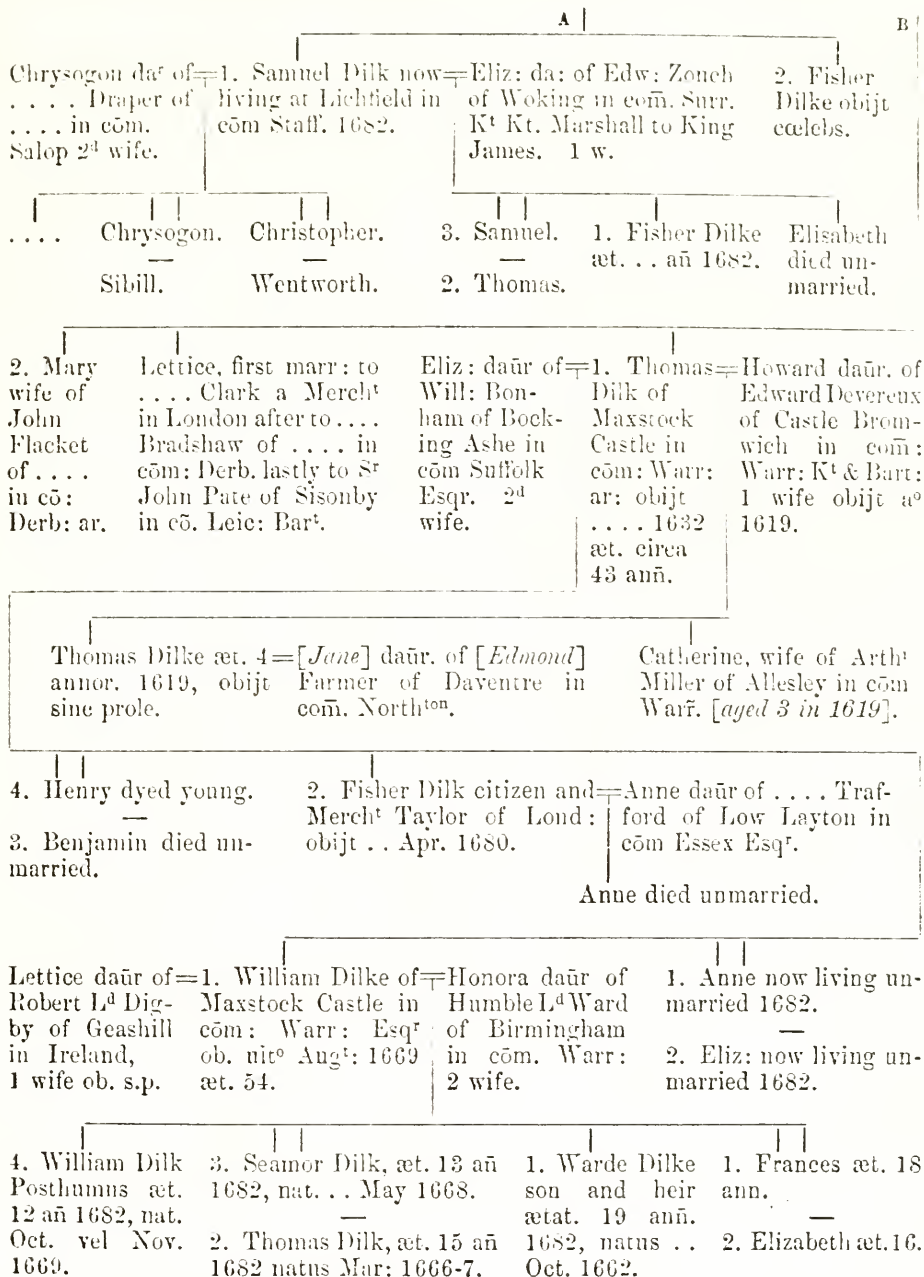 A B
Chrysogon daʳ of
. . . . Draper of
. . . . in cōm.
Salop 2ᵈ wife.
1. Samuel Dilk now
living at Lichfield in
cōm Staff. 1682.
Eliz: da: of Edw: Zouch
of Woking in com̄. Surr.
Kᵗ Kt. Marshall to King
James. 1 w.
2. Fisher
Dilke obijt
cœlebs.
. . . .
Chrysogon.
—
Sibill.
Christopher.
—
Wentworth.
3. Samuel.
—
2. Thomas.
1. Fisher Dilke
æt. . . an̄ 1682.
Elisabeth
died un-
married.
2. Mary
wife of
John
Flacket
of . . . .
in cō:
Derb: ar.
Lettice, first marr: to
. . . . Clark a Merchᵗ
in London after to . . . .
Bradshaw of . . . . in
cōm: Derb. lastly to Sʳ
John Pate of Sisonby
in cō. Leic: Barᵗ.
Eliz: daūr of
Will: Bon-
ham of Bock-
ing Ashe in
cōm Suffolk
Esqr. 2ᵈ
wife.
1. Thomas
Dilk of
Maxstock
Castle in
cōm: Warr:
ar: obijt
. . . . 1632
æt. circa
43 an̄n̄.
Howard daūr. of
Edward Devereux
of Castle Brom-
wich in com̄:
Warr: Kᵗ & Bart:
1 wife obijt aᵒ
1619.
Thomas Dilke æt. 4
annor. 1619, obijt
sine prole.
[Jane] daūr. of [Edmond]
Farmer of Daventre in
com̄. Northᵗᵒⁿ.
Catherine, wife of Arthʳ
Miller of Allesley in cōm
Warr̄. [aged 3 in 1619].
4. Henry dyed young.
—
3. Benjamin died un-
married.
2. Fisher Dilk citizen and
Merchᵗ Taylor of Lond:
obijt . . Apr. 1680.
Anne daūr of . . . . Traf-
ford of Low Layton in
cōm Essex Esqʳ.
Anne died unmarried.
Lettice daūr of
Robert Lᵈ Dig-
by of Geashill
in Ireland,
1 wife ob. s.p.
1. William Dilke of
Maxstock Castle in
cōm: Warr: Esqʳ
ob. ultᵒ Augᵗ: 1669
æt. 54.
Honora daūr of
Humble Lᵈ Ward
of Birmingham
in cōm. Warr:
2 wife.
1. Anne now living un-
married 1682.
—
2. Eliz: now living un-
married 1682.
4. William Dilk
Posthumus æt.
12 an̄ 1682, nat.
Oct. vel Nov.
1669.
3. Seamor Dilk, æt. 13 an̄
1682, nat. . . May 1668.
—
2. Thomas Dilk, æt. 15 an̄
1682 natus Mar: 1666-7.
1. Warde Dilke
son and heir
ætat. 19 an̄n̄.
1682, natus . .
Oct. 1662.
1. Frances æt. 18
ann.
—
2. Elizabeth æt. 16.